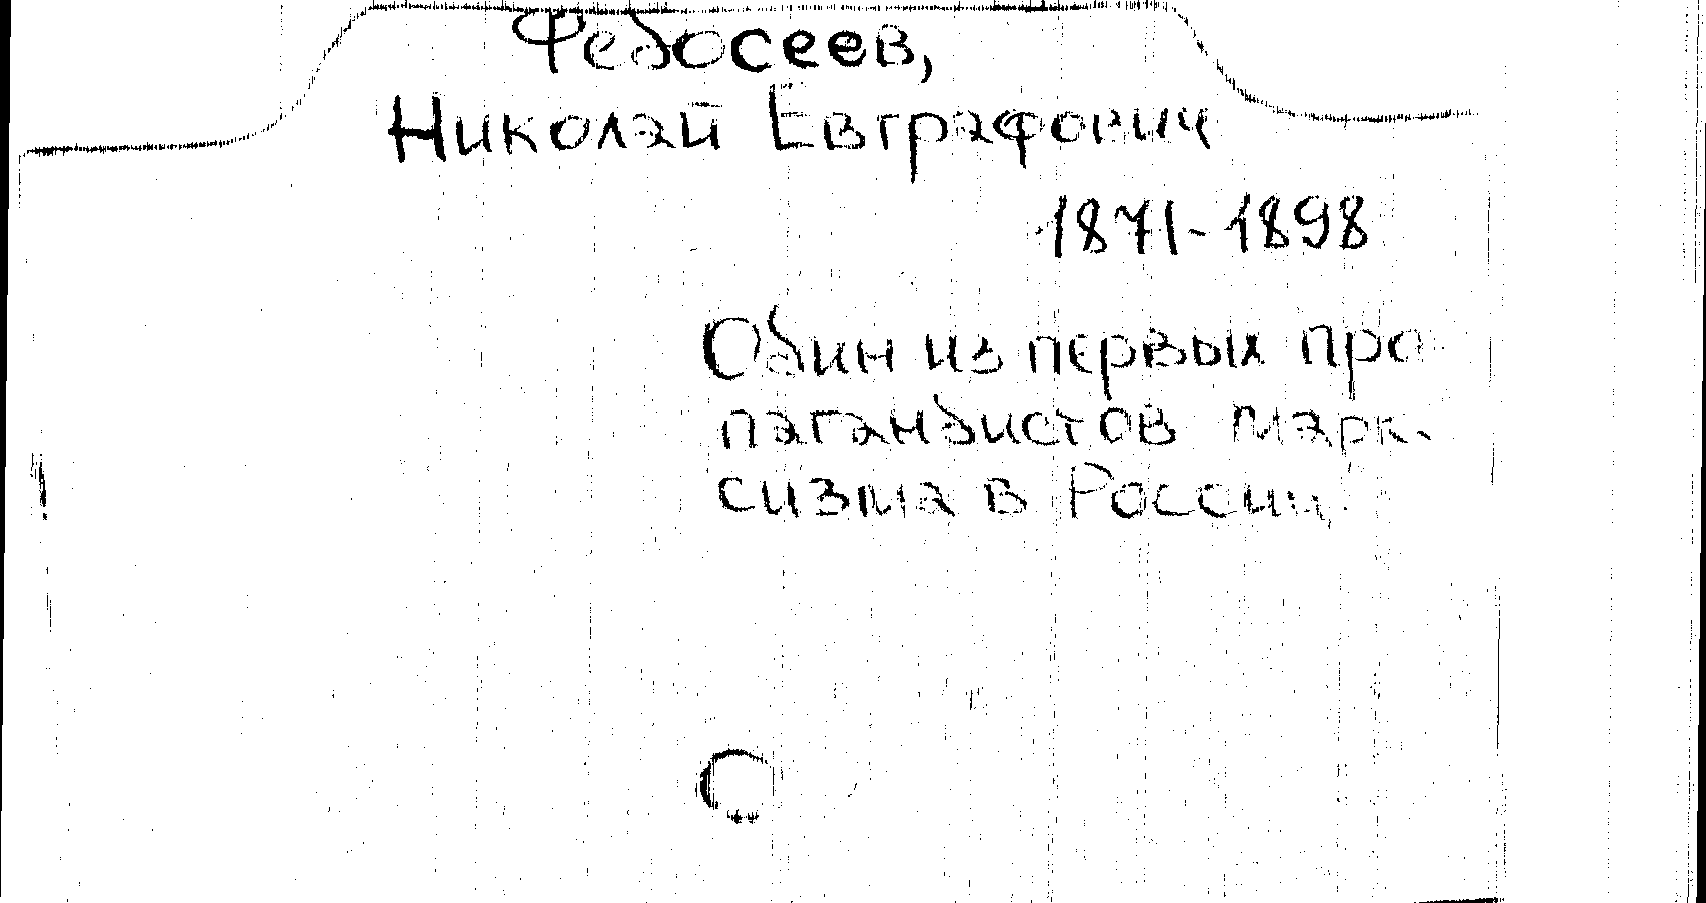 Федосеев,
Николай Евграфович
1871-1898
Один из первых про
пагандистов марк-
сизма в России